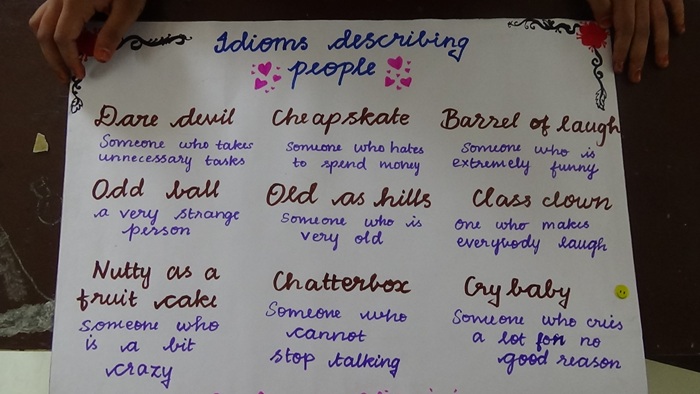 Idioms describing
people
Dare devil
Someone who takes
unnecessary tasks
Cheapskate
Someone who hates
to spend money
Barrel of laugh
Someone who is
extremely funny
Odd ball
a very strange
person
Old as hills
Someone who is
very old
Class clown
one who makes
everybody laugh
Nutty as a
fruit cake
someone who
is a bit
crazy
Chatterbox
Someone who
cannot
stop talking
Cry baby
Someone who cries
a lot for no
good reason